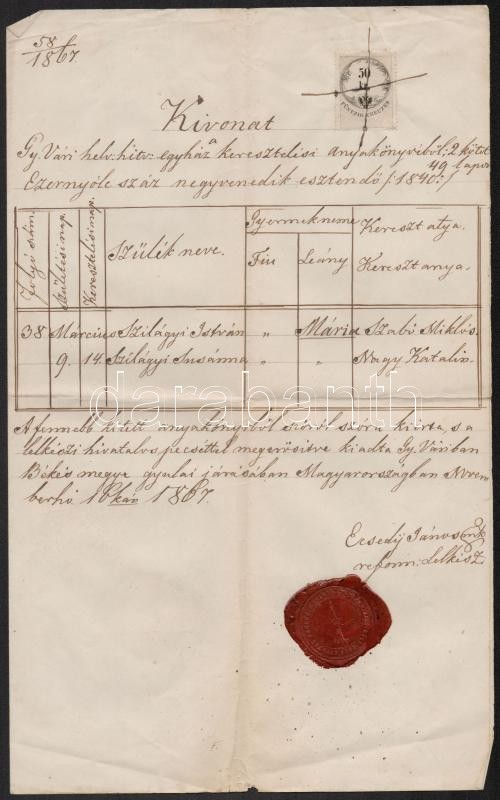 58/1867.
50
kr.
FÜNFZIG KREUZER
Kivonat
a
Gy. Vári helv: hitv: egyház keresztelési anyakönyvéből: 2 kötet
49 lapon
Ezernyólc száz negyvenedik esztendő /: 1840 :/
Folyó szám.
Születési nap.
Keresztelési nap.
Szülék neve.
Gyermek neme
Fiu
Leány.
Kereszt atya.
Kereszt anya.
38 Március Szilágyi István „ Mária Szabó Miklós.
9. 14. Szilágyi Susánna „ „ Nagy Katalin.
A fennebb kitett anyakönyvből szóról szóra kiírta, s a
lelkészi hivatalos pecséttel megerősitve kiadta Gy. Váriban
Békés megye gyulai járásában Magyarországban Novem
berhó 16kán 1867.
Ecsedy János mk
reform: Lelkész.
darabanth